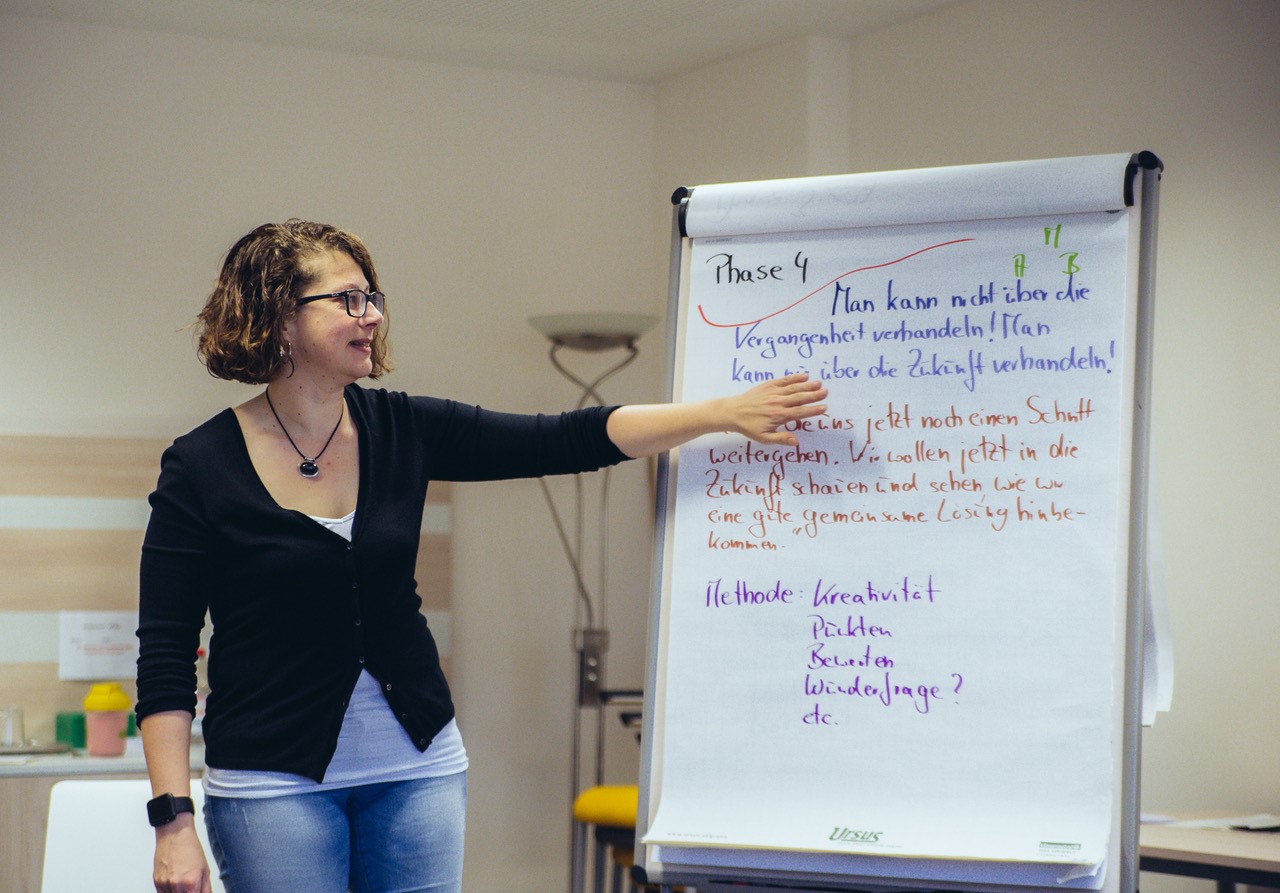 Phase 4
M
A B
Man kann nicht über die
Vergangenheit verhandeln! Man
kann über die Zukunft verhandeln!
uns jetzt noch einen Schritt
weitergehen. Wir wollen jetzt in die
Zukunft schauen und sehen wie wir
eine gute gemeinsame Lösung hinbe-
kommen."
Methode: Kreativität
Punkten
Bewerten
Wunderfrage?
etc.
Ursus